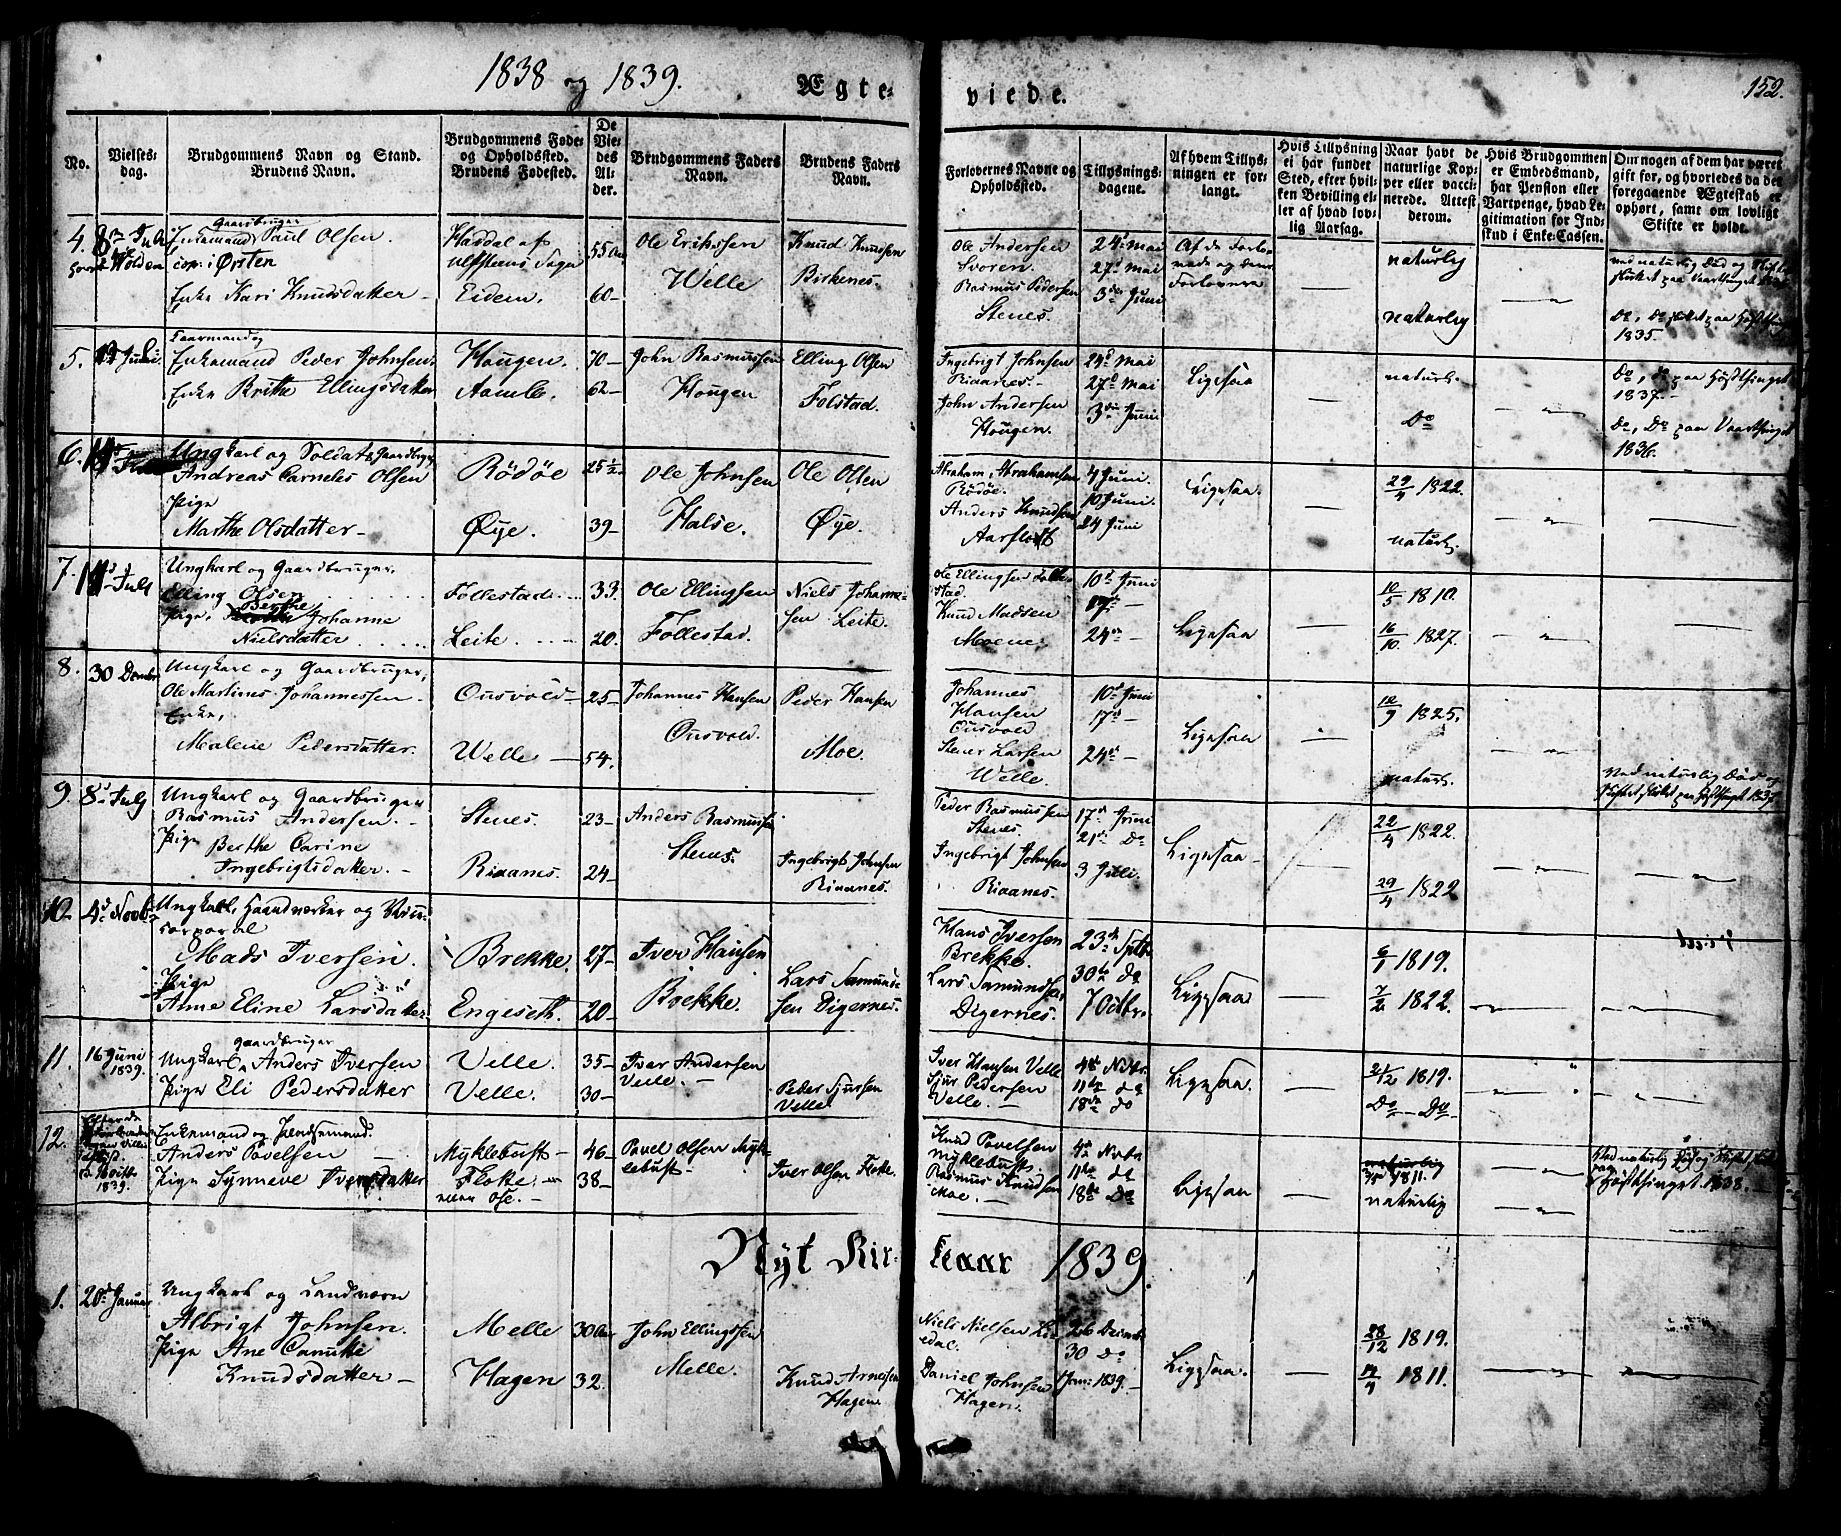 1838 og 1839.
Ægte-
viede.
152.
No.
Vielses-
dag.
Brudgommens Navn og Stand.
Brudens Navn.
Brudgommens Føde-
og Opholdssted.
Brudens Fødested.
De
Vie-
des
Al-
der.
Brudgommens Faders
Navn.
Brudens Faders
Navn.
Forlovernes Navne og
Opholdssted.
Tillysnings-
dagene.
Af hvem Tillys-
ningen er for-
langt.
Hvis Lillysning
ei har fundet
Sted, efter hvil-
ken Bevilling el-
ler af hvad lov-
lig Aarsag.
Naar havt de
naturlige Kop-
per eller vacci-
nerede. Attest
derom.
Hvis Brudgommen
er Embedsmand,
har Pension eller
Vartpenge, hvad Le-
gitimation for Ind-
skud i Enke-Cassen.
Om nogen af dem har været
gift før, og hvorledes da det
foregaaende Ægteskab er
ophørt, samt om lovligt
Skifte er holdt.
4.
Gaardbruger
Enkemand Paul Olsen.
cop: i Ørsten
Enke Kari Knudsdatter
Haddal af
Ulfsteens Sogn
Eidem.
55 Aar
60
Ole Eriksen
Welle
Knud Knudsen
Birkenes.
Ole Andersen
Svoren.
Rasmus Pedersen
Stenes.
24de Mai
27de Mai
3die Juni
Af de Forlo-
vede og deres
Forlovere
naturlig
naturlig
Do, Do skiftet paa Høstthinget
1835.
5.
Enkemand Peder Johnsen
Enke Brithe Ellingsdatter
Hougen.
70
62
John Rasmussen
Hougen
Elling Olsen
Folstad.
Ingebrigt Johnsen
Riaanes.
John Andersen
Hougen.
24de Mai
27de Mai
3die Juni
Ligesaa
naturl.
Do
Do, do paa Høstthinget
1837.
Do, Do paa Vaarthinget
1836.
6.
Ungkarl og Soldat & Gaardbruger
Andreas Carneles Olsen
Pige
Marthe Olsdatter
Rödöe
Øye.
25 1/2
39
Ole Johnsen
Halse.
Ole Olsen
Øye.
Abraham Abrahamsen
Rödöe.
Anders Knudsen
Aarflot
4 Juni.
10 Juni.
24 Juni
Ligesaa.
29/4 1822.
naturl.
7.
Ungkarl og Gaardbruger.
Elling Olsen
Pige, Berthe Johanne
Nielsdatter
Föllestad
Leite
33.
20.
Ole Ellingsen
Föllestad.
Niels Johanne-
sen Leite.
Ole Ellingsen Folle-
stad.
Knud Madsen
Moene,
10de Juni
17de
24de
Ligesaa
10/5 1810.
16/10 1827.
8.
30 Decembr
Ungkarl og Gaardbruger,
Ole Martines Johannessen
Enke,
Malene Pedersdatter.
Ousvold
Welle
25
54.
Johannes Hansen
Ousvold.
Peder Hansen
Moe.
Johannes
Hansen
Ousvold
Stener Larsen
Welle.
10de Juni
17de
24de
Ligesaa
12/9 1825.
naturl.
Ved naturlig Död og
Skiftet sluttet paa Høstthinget 1837.
9.
8de July
Ungkarl og Gaardbruger
Rasmus Andersen.
Pige Berthe Carine
Ingebrigtsdatter.
Stenes.
Riaanes.
23
24
Anders Rasmussen
Stenes.
Ingebrigt Johnsen
Riaanes.
Peder Rasmussen
Stenes.
Ingebrigt Johnsen
Riaanes.
17de Juni
21de Do
3 Juli.
Ligesaa
22/4 1822.
29/4 1822
10.
4de Novbr
Ungkarl, Haandværker og
corporal
Mads Iversen.
Pige
Anne Eline Larsdatter
Brekke.
Engeseth.
27
20
Iver Hansen
Brekke.
Lars Samund-
sen Digernes.
Hans Iversen
Brekke.
Lars Samundsen
Digernes.
23de Sptbr
30te do
7 Octbr.
Ligesaa
6/1 1819.
7/2 1822.
11.
16 Juni
1839.
gaardbruger
Ungkarl Anders Iversen
Pige Eli Pedersdatter
Velle.
Velle.
35
30
Iver Andersen
Velle.
Peder Sjursen
Velle
Iver Hansen Velle
Sjur Pedersen
Velle.
4de Novbr.
11te do
18de do
Ligesaa.
2/12 1819.
Do Do
12.
1839.
Enkemand og Huusmand.
Anders Povelsen
Pige Synneve Iversdatter
Myklebust
Floke.
46
38
Povel Olsen Myk-
lebust
Iver Olsen Floke.
Knud Povelsen
Myklebust.
Rasmus Knudsen
Moe.
4de Novbr
11te do
18de Do
Ligesaa
naturlig
1811.
naturlig
Høstthinget 1838.
Nyt Kir-
keaar 1839.
1.
20de Januar
Ungkarl og Landværn
Albrigt Johnsen.
Pige Ane Canutte
Knudsdatter
Melle
Hagen
30 Aar
32.
John Ellingsen
Melle.
Knud Arnesen
Hagen.
Niels Nielsen
edal.
Daniel Johnsen
Hagen.
26 Decembr
30 Do
1 Jan: 1839.
Ligesaa.
28/12 1819.
14/4 1811.